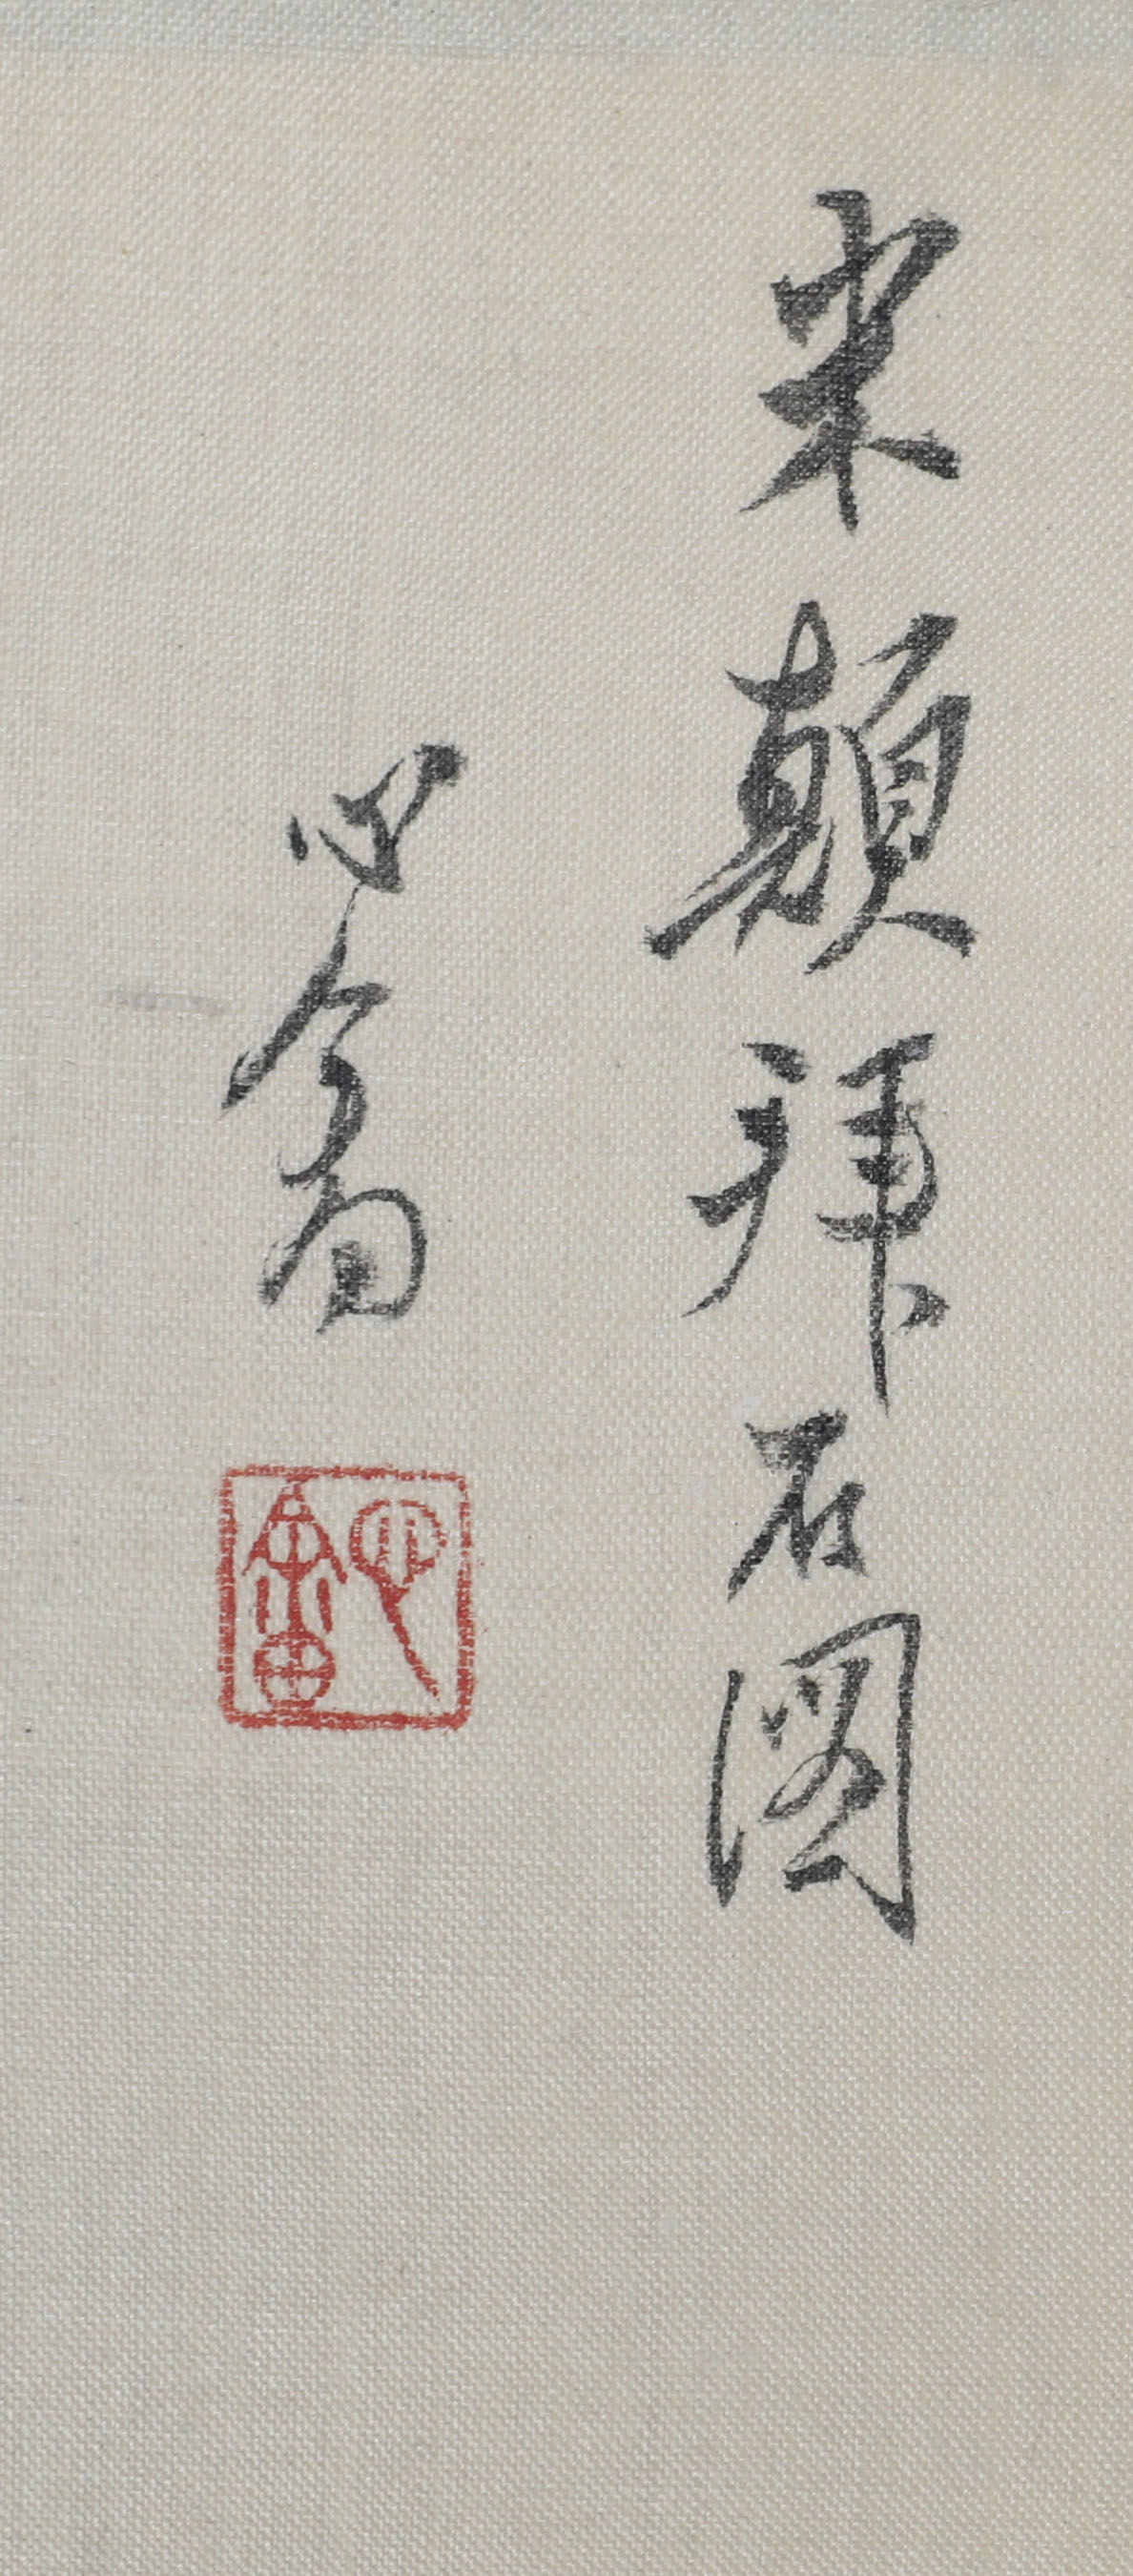 米顛拜石圖
心畬
心畬